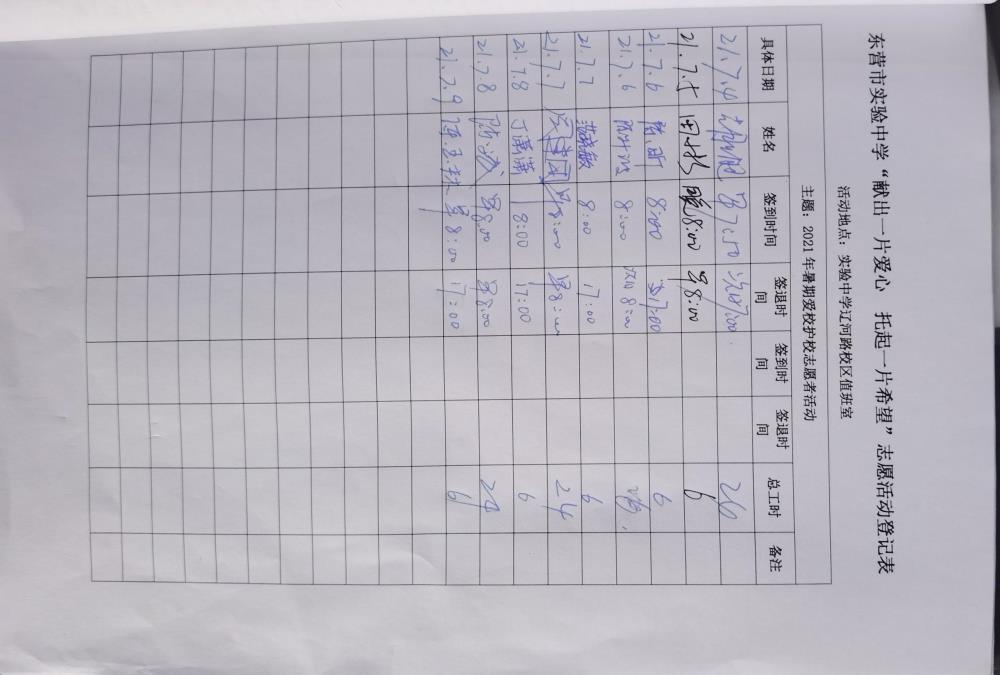 东营市实验中学“献出一片爱心 托起一片希望”志愿活动登记表
活动地点：实验中学辽河路校区值班室
主题：2021年暑期爱校护校志愿者活动
具体日期 姓名 签到时间 签退时间 签到时间 签退时间 总工时 备注
21.7.4 7:50
21.7.5 晚8:00 早8:00 6
21.7.6 8:00 17:00 6
21.7.6 8:00 8:00
21.7.7 8:00 17:00 6
21.7.7 早8:00 早8:00 24
21.7.8 丁潇潇 8:00 17:00 6
21.7.8 早8:00 早8:00 24
21.7.9 早8:00 17:00 6